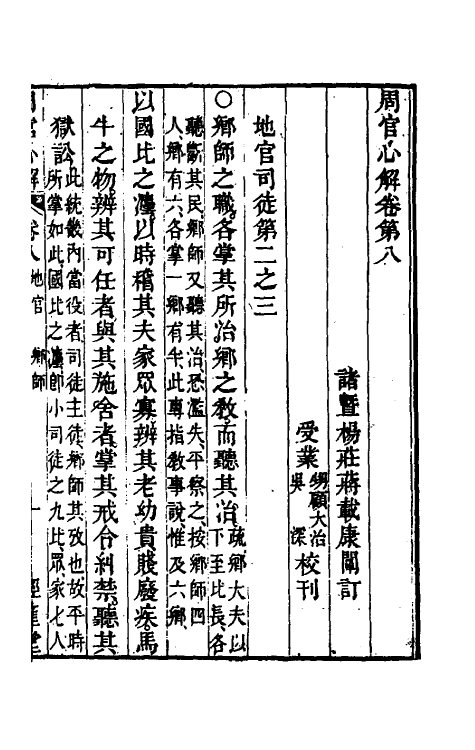 周官心解卷第八
諸暨楊莊蔣載康闡訂
受業
甥顧大治
吳 深
校刊
地官司徒第二之三
○鄉師之職各掌其所治鄉之教而聽其治
疏鄉大夫以
下至比長各
聽斷其民鄉師又聽其治恐濫失平察之按鄉師四
人鄉有六各掌一鄉有半此專指教事說惟及六鄉
以國比之灋以時稽其夫家眾寡辨其老幼貴賤廢疾馬
牛之物辨其可任者與其施舍者掌其戒令糾禁聽其
獄訟
此統畿內當役者司徒主徒鄉師其攷也故平時
所掌如此國比之灋卽小司徒之九比眾家七人
周官心解 卷八 地官 鄉師 一 經